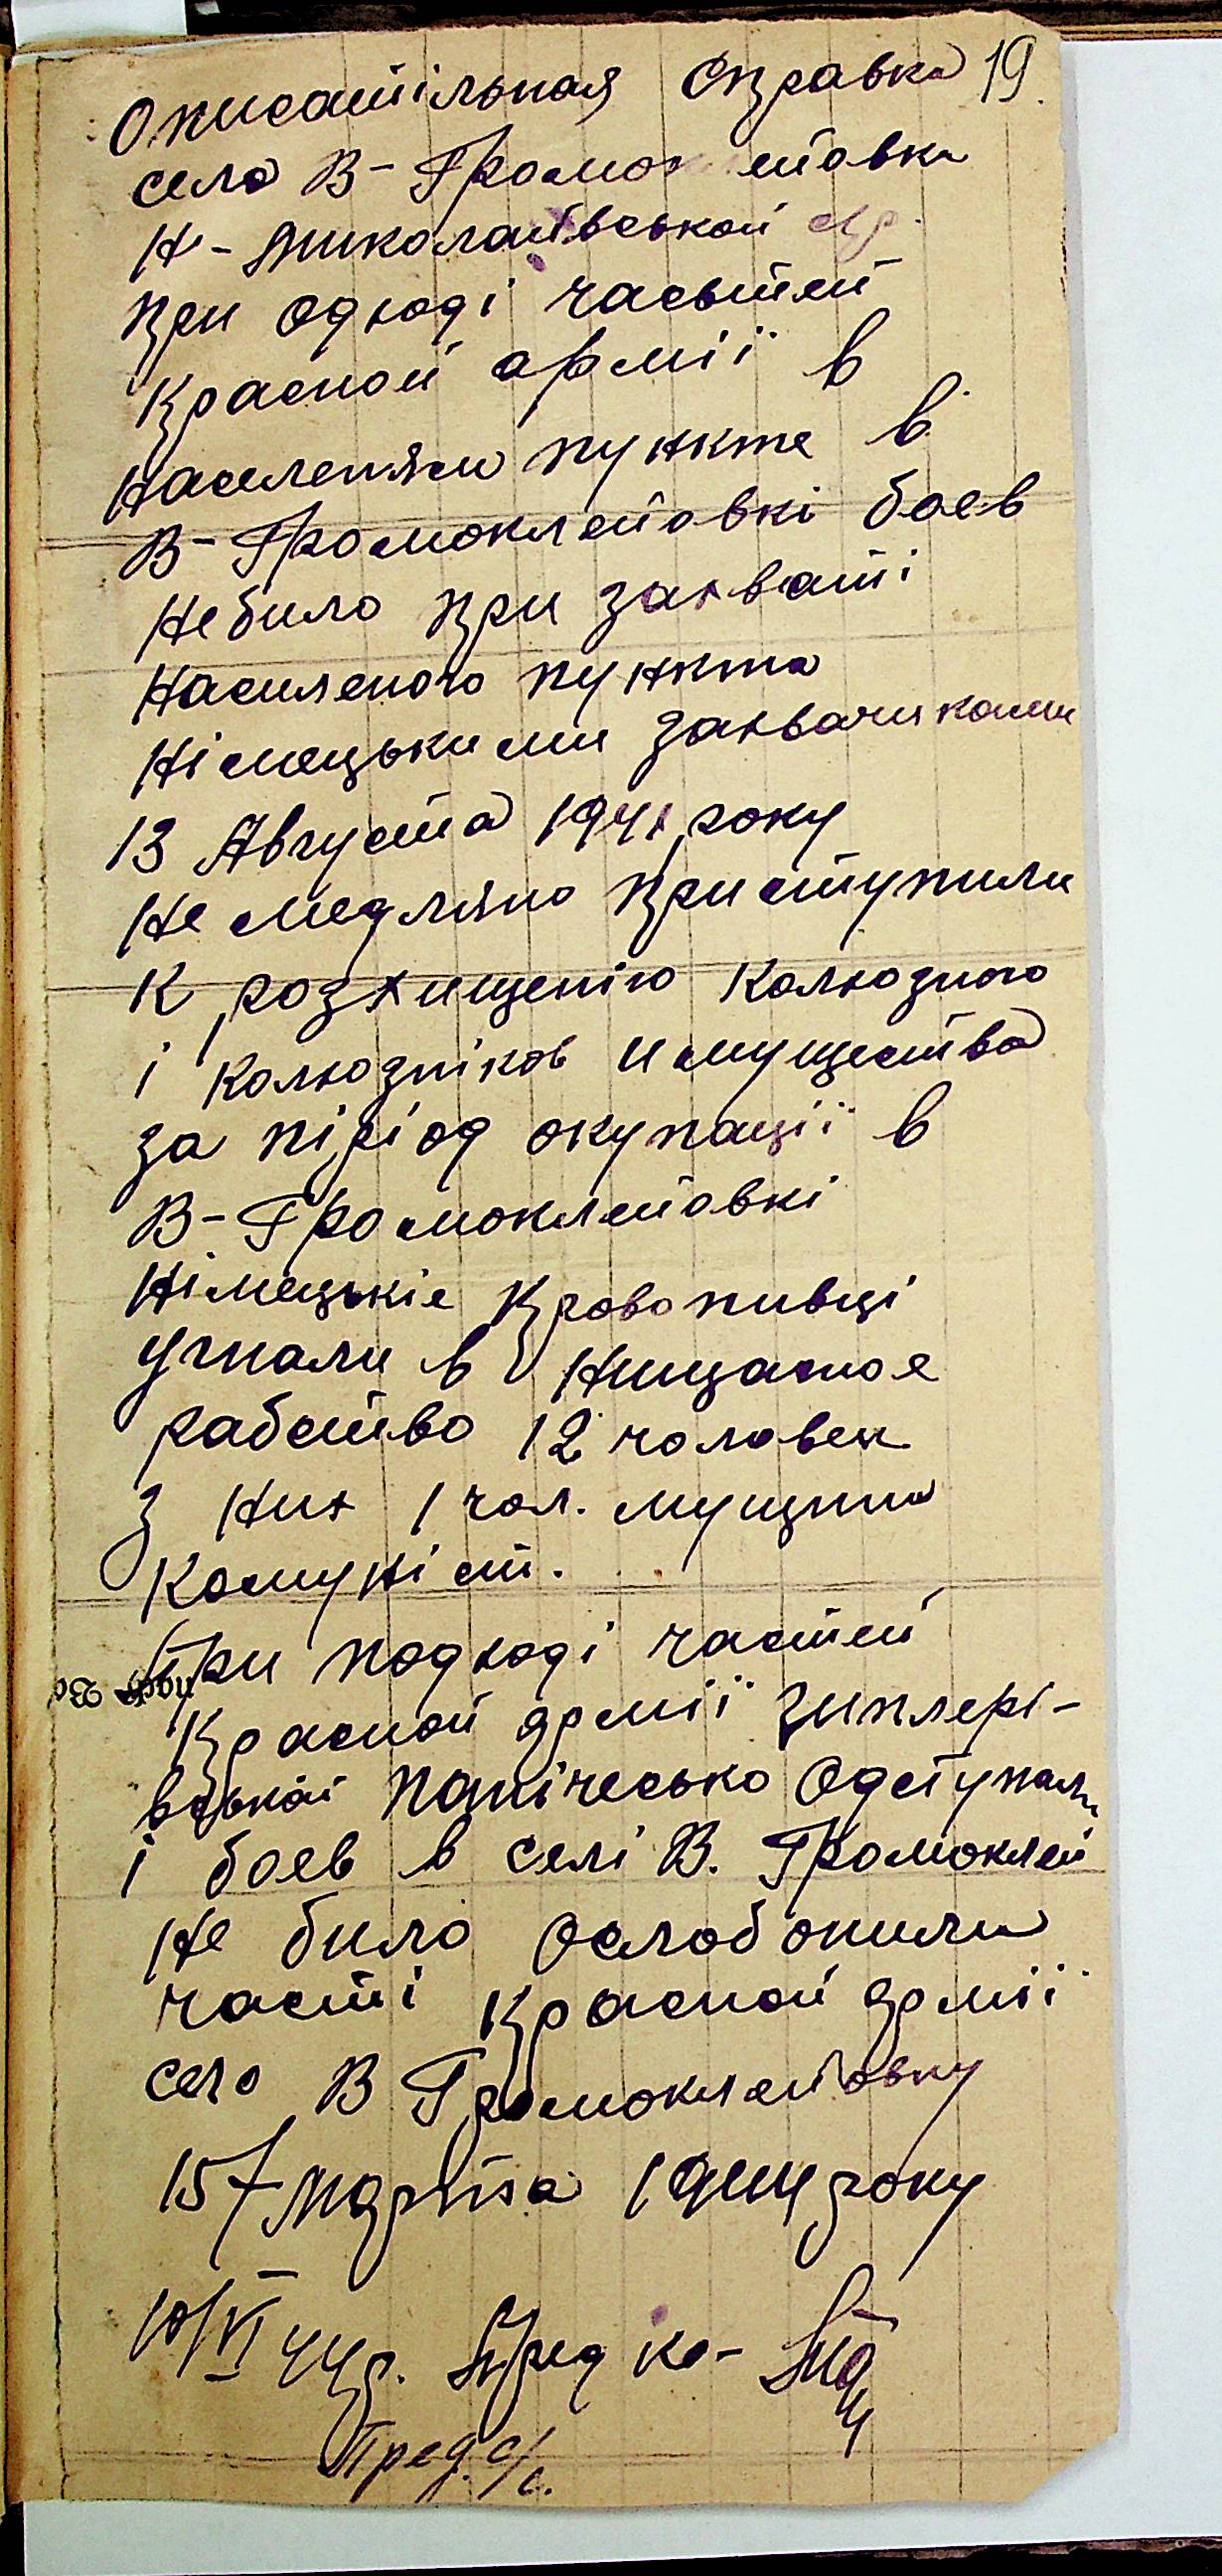 Описатільная Справка 19.
села В-Громок ейовка
Н-Миколаивськой
При одході часьтей
Красной армії в
населеням пункте в
В-Громоклейовкі боев
Небило при захваті
Населеного пункта
Німецькими захватчиками
13 Августа 1941 року
Не медляно приступили
К розхищенію Колхозного
і колхозніков имущества
за піріод окупації в
В-Громоклейовкі
Німецькіе Кровопивці
Угнали в
рабство 12 человек
З них 1 чол. мущина
комуніст.
При подході частей
Красной армії гитлері-
вськай панічесько Одступали
і боев в селі В. Громоклей
Не било Ослобонили
часті Красной армії
село В Громоклейовку
15/ Марта 1944 року
10/VI 44р. Пред ко-
Пред. с/с.